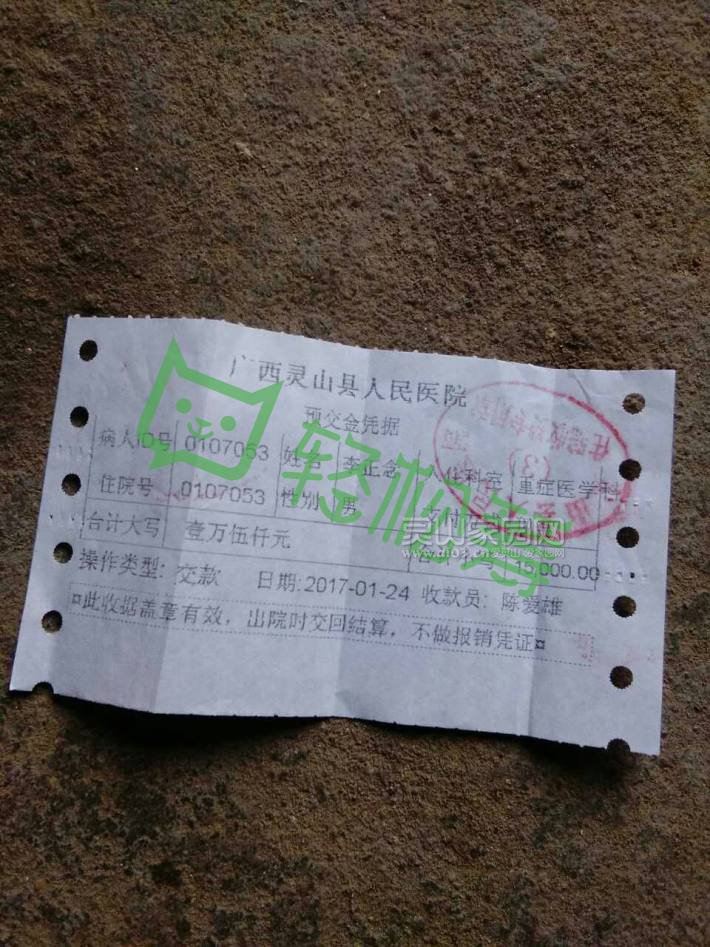 广西灵山县人民医院
预交金凭据
病人ID号 0107053 姓名 李正念 入住科室 重症医学科
住院号 0107053 性别 男 支付
合计大写 壹万伍仟元 15,000.00
操作类型: 交款 日期: 2017-01-24 收款员: 陈爱雄
¤此收据盖章有效，出院时交回结算，不做报销凭证¤
轻松筹
灵山家园网